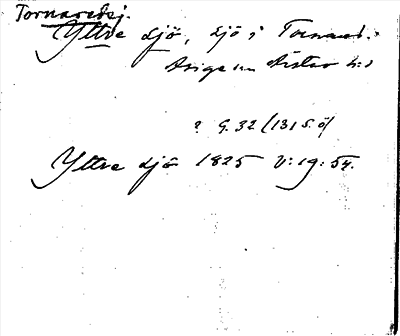 Tornaredsj.
Yttre sjö, sjö i Tornared.
Asige sn Årstad h:d
? G. 32 (1315. ö)
Yttre sjö 1825 V: 19: 54.